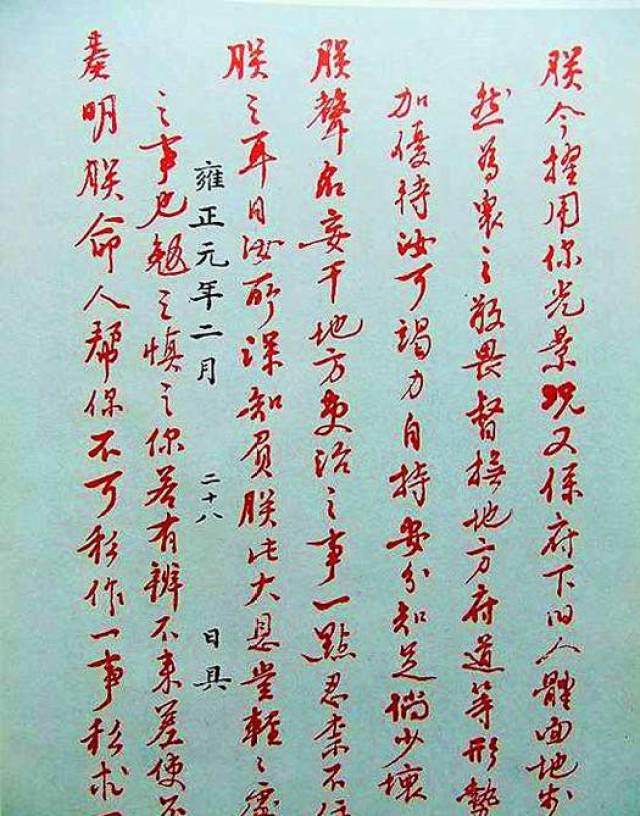 朕今擢用你光景況又係府下旧人體面地步
然為衆之敬畏督撫地方府道等形勢
加優待汝可竭力自持安分知足倘少壞
朕聲名妄干地方吏治之事一點忍柰不住
朕之耳目汝所深知負朕此大恩豈輕之處
雍正元年二月 二十八 日具
之事也勉之慎之你若有辦不來差使不
奏明朕命人幫你不可私作一事私求一